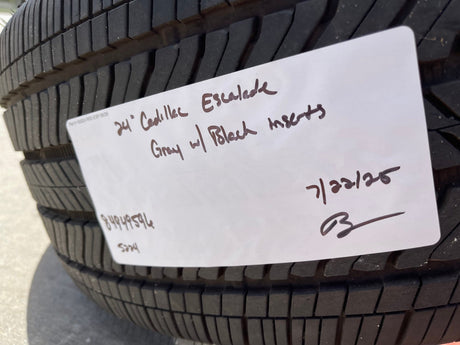 24" Cadillac Escalade
Gray w/ Black Inserts
7/22/25
84949596
5224